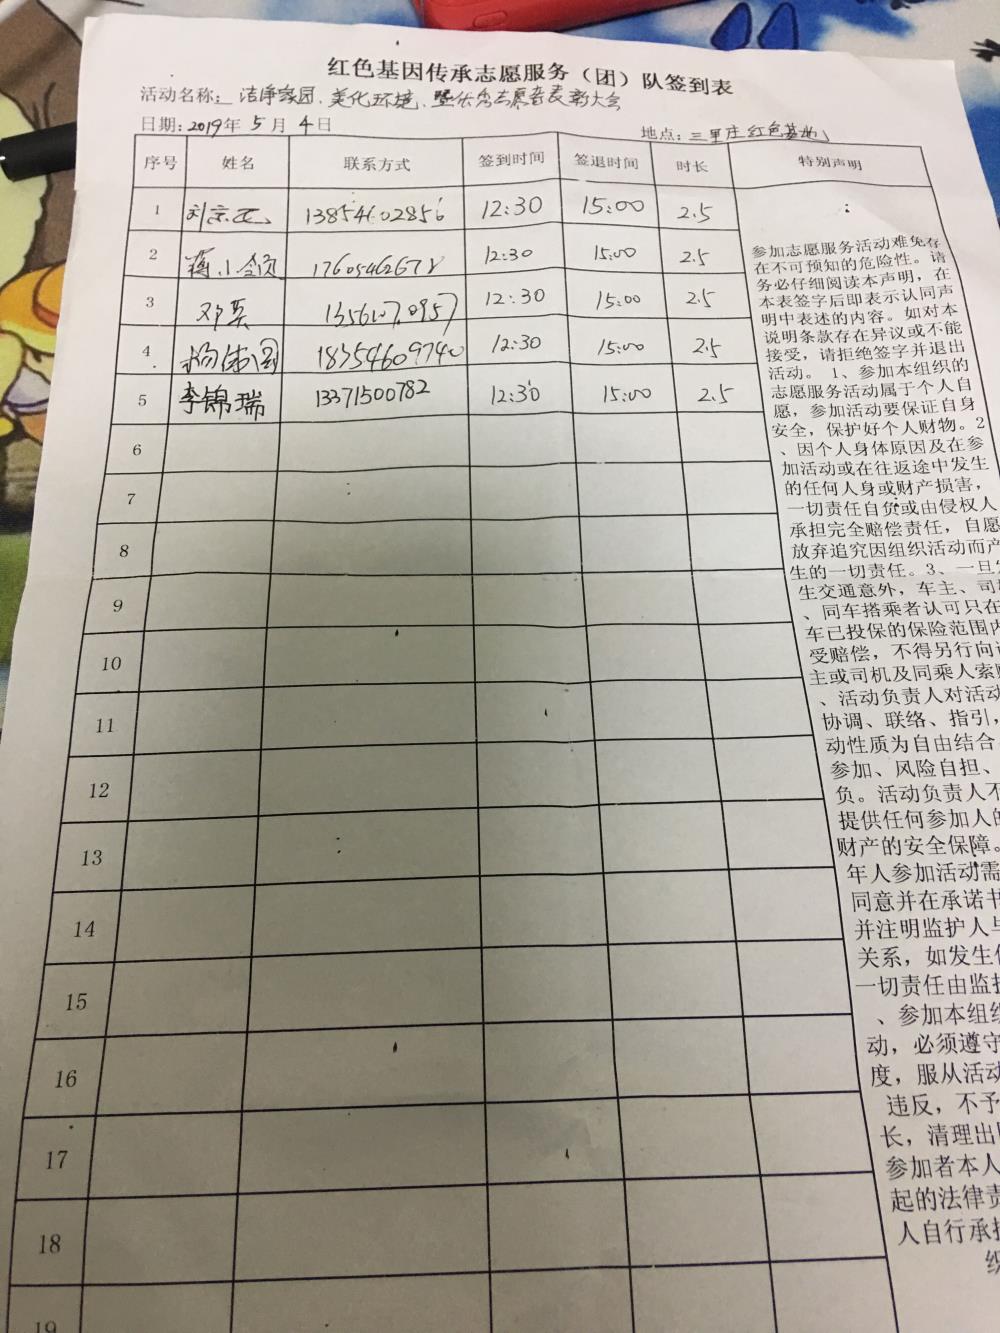 红色基因传承志愿服务（团）队签到表
活动名称：洁净家园、美化环境、暨优秀志愿者表彰大会
日期：2019年 5 月 4 日 地点：三里庄红色基地
序号 姓名 联系方式 签到时间 签退时间 时长 特别声明
1 刘宗 13854602856 12:30 15:00 2.5
2 蒋 17605462678 12:30 15:00 2.5
3 邓英 12:30 15:00 2.5
4 杨 18354609740 12:30 15:00 2.5
5 李锦瑞 13371500782 12:30 15:00 2.5
6
7
8
9
10
11
12
13
14
15
16
17
18
19
参加志愿服务活动难免存
在不可预知的危险性。请
务必仔细阅读本声明，在
本表签字后即表示认同声
明中表述的内容。如对本
说明条款存在异议或不能
接受，请拒绝签字并退出
活动。 1、参加本组织的
志愿服务活动属于个人自
愿，参加活动要保证自身
安全，保护好个人财物。2
、因个人身体原因及在参
加活动或在往返途中发生
的任何人身或财产损害，
一切责任自负或由侵权人
承担完全赔偿责任，自愿
放弃追究因组织活动而产
生的一切责任。3、一旦发
生交通意外，车主、司机
、同车搭乘者认可只在
车已投保的保险范围内
受赔偿，不得另行向
主或司机及同乘人索赔
、活动负责人对活动
协调、联络、指引，
动性质为自由结合
参加、风险自担、
负。活动负责人不
提供任何参加人的
财产的安全保障。
年人参加活动需
同意并在承诺书
并注明监护人与
关系，如发生
一切责任由监护
、参加本组织
动，必须遵守
度，服从活动
违反，不予
长，清理出
参加者本人
起的法律责
人自行承担
织